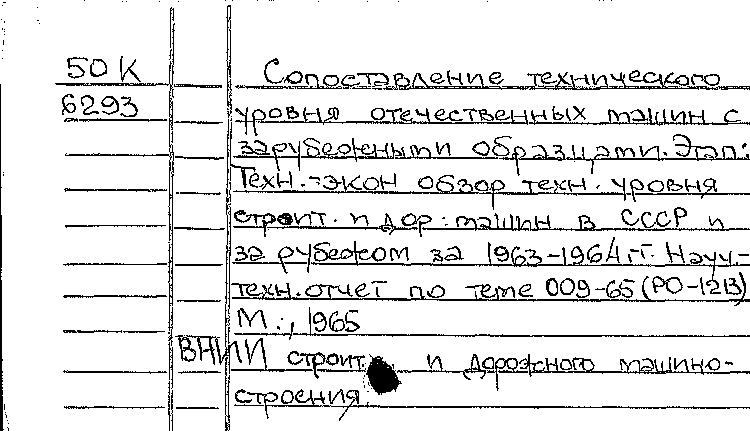 50К Сопоставление технического
6293 уровня отечественных машин с
зарубежными образцами. Этап:
Техн.-экон обзор техн. уровня
строит. и дор. машин в СССР и
за рубежом за 1963-1964 гг. Науч.-
техн. отчет по теме 009-65 (РО-1213)
М., 1965
ВНИИ строит. и дорожного машино-
строения.